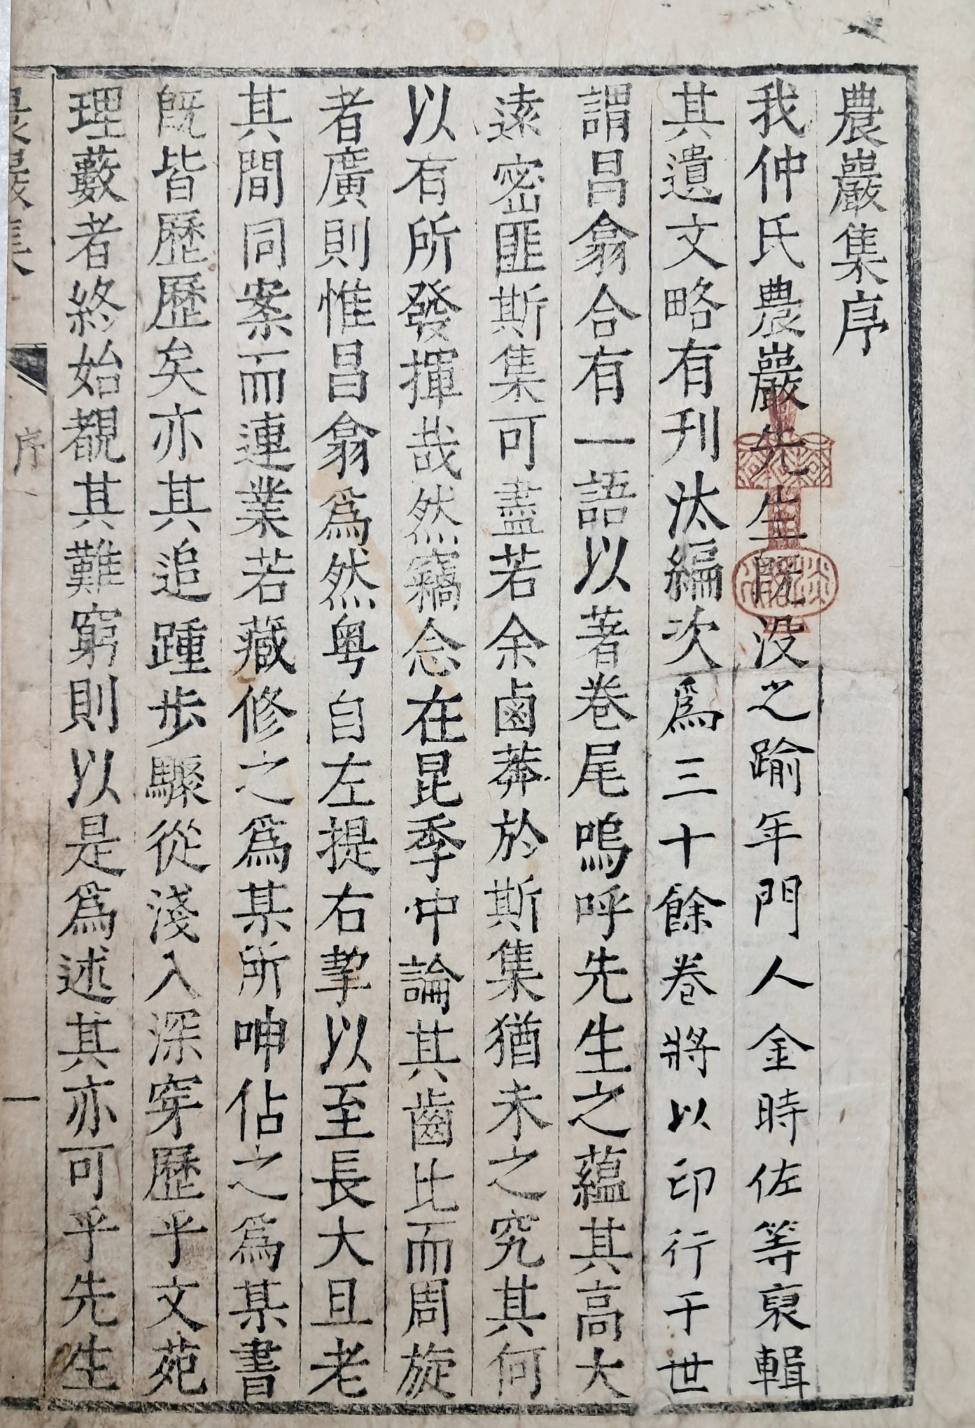 農巖集序
我仲氏農巖先生旣没之踰年門人金時佐等裒輯
其遺文略有刊汰編次爲三十餘卷將以印行于世
謂昌翕合有一語以著卷尾嗚呼先生之蘊其高大
遠密匪斯集可盡若余鹵莽於斯集猶未之究其何
以有所發揮哉然竊念在昆季中論其齒比而周旋
者廣則惟昌翕爲然粤自左提右挈以至長大且老
其間同案而連業若藏修之爲某所呻佔之爲某書
旣皆歷歷矣亦其追踵步驟從淺入深穿歷乎文苑
理藪者終始覩其難窮則以是爲述其亦可乎先生
序
一